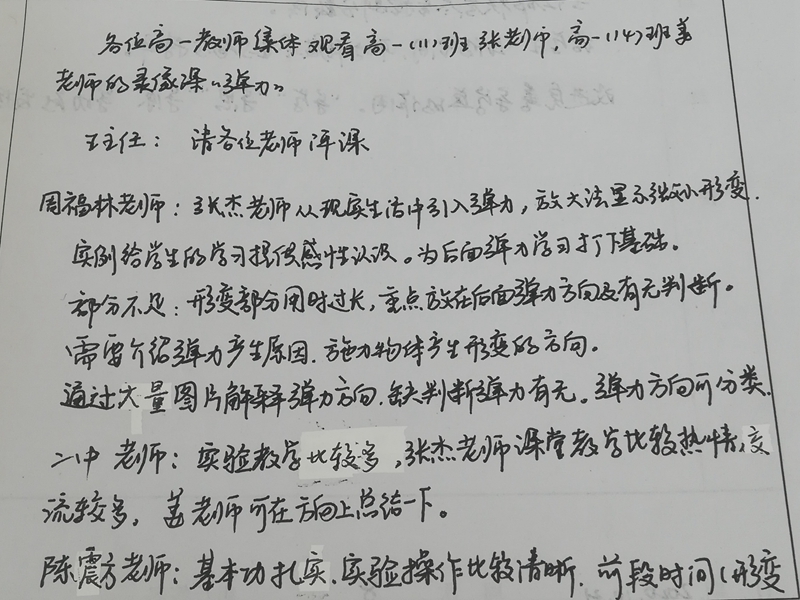 各位高一教师集体观看高一(11)班张老师，高一(14)班姜
老师的录像课《弹力》
王主任： 请各位老师评课
周福林老师：张杰老师从现实生活中引入弹力，放大法显示微小形变.
实例给学生的学习提供感性认识。为后面弹力学习打下基础。
部分不足：形变部分用时过长，重点放在后面弹力方向及有无判断。
需要介绍弹力产生原因.施力物体产生形变的方向。
通过大量图片解释弹力方向.缺判断弹力有无。弹力方向可分类.
二中 老师：实验教学比较多,张杰老师课堂教学比较热情,交
流较多，姜老师可在方向上总结一下。
陈震方老师：基本功扎实.实验操作比较清晰.前段时间(形变